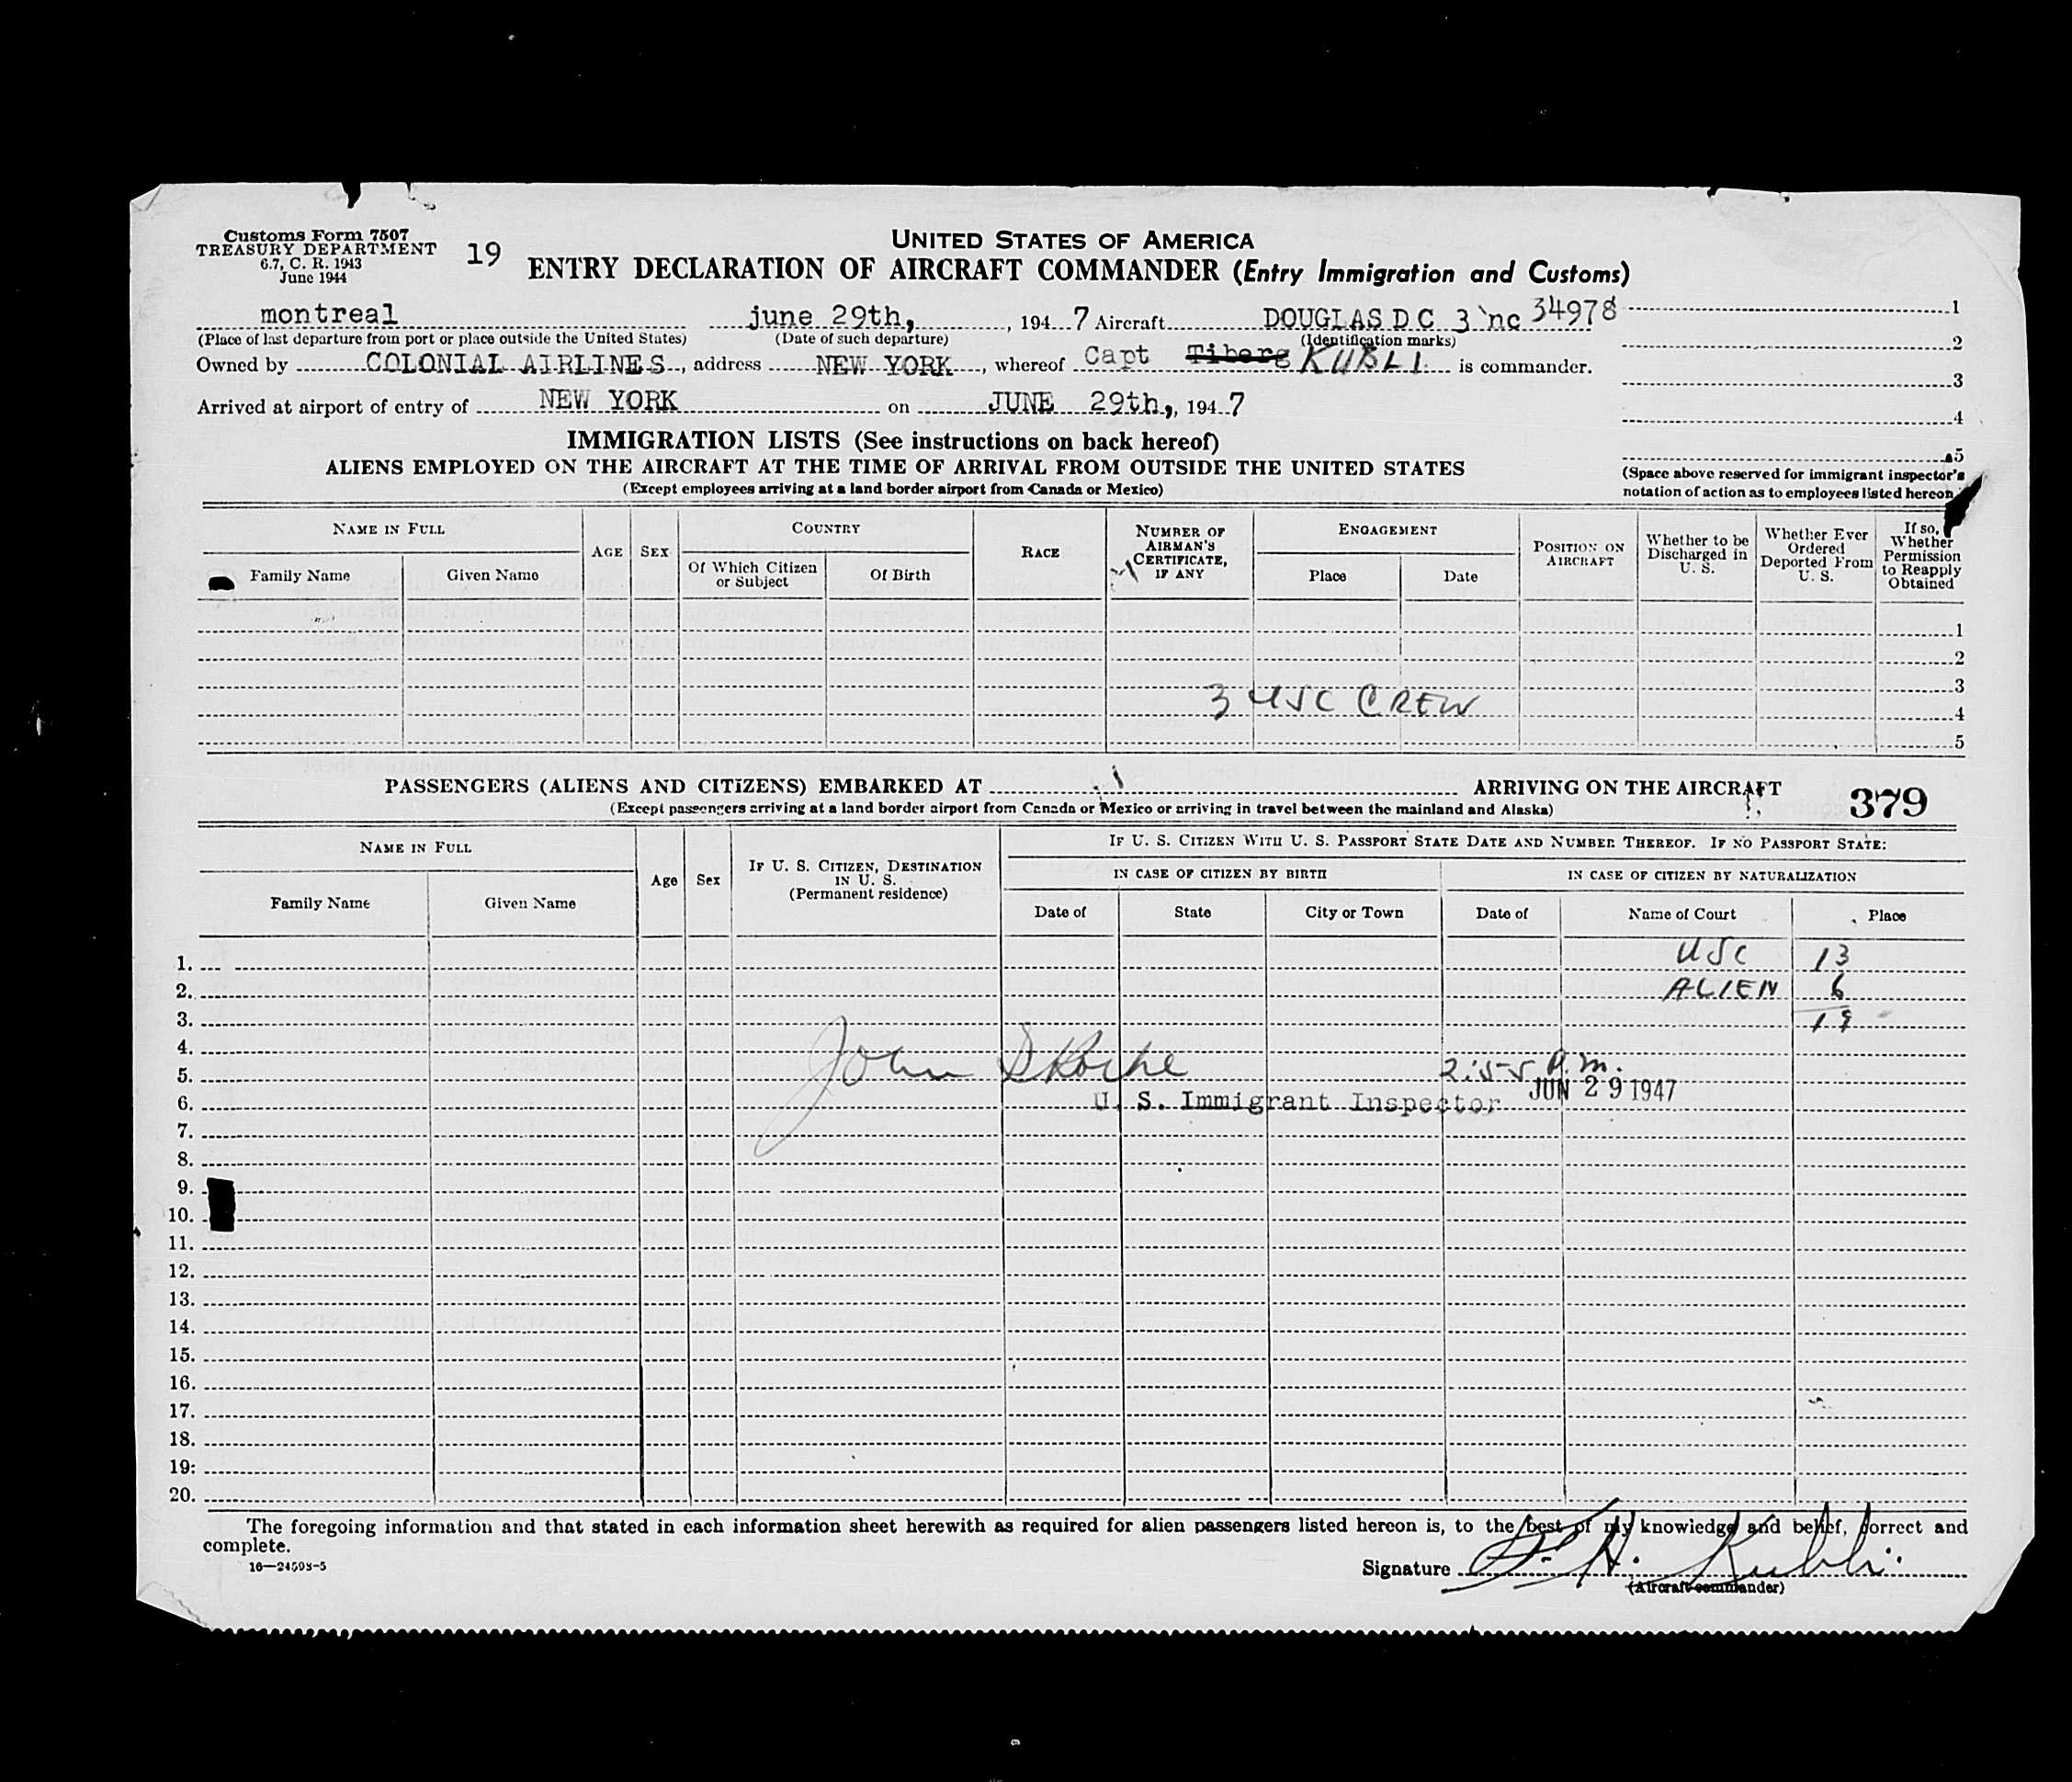 Customs Form 7507
TREASURY DEPARTMENT
6.7, C. R. 1943
June 1944
19
UNITED STATES OF AMERICA
ENTRY DECLARATION OF AIRCRAFT COMMANDER (Entry Immigration and Customs)
montreal june 29th, , 194 7 Aircraft DOUGLAS D C 3 nc 34978 1
(Place of last departure from port or place outside the United States) (Date of such departure) (Identification marks) 2
Owned by COLONIAL AIRLINES, address NEW YORK, whereof Capt Tiberg KUBLI is commander.
3
Arrived at airport of entry of NEW YORK on JUNE 29th,, 194 7
4
IMMIGRATION LISTS (See instructions on back hereof)
5
ALIENS EMPLOYED ON THE AIRCRAFT AT THE TIME OF ARRIVAL FROM OUTSIDE THE UNITED STATES
(Except employees arriving at a land border airport from Canada or Mexico)
(Space above reserved for immigrant inspector's
notation of action as to employees listed hereon
NAME IN FULL
Family Name Given Name
AGE SEX
COUNTRY
Of Which Citizen or Subject Of Birth
RACE
NUMBER OF AIRMAN'S CERTIFICATE, IF ANY
ENGAGEMENT
Place Date
POSITION ON AIRCRAFT
Whether to be Discharged in U. S.
Whether Ever Ordered Deported From U. S.
If so, Whether Permission to Reapply Obtained
1
2
3
3 USC CREW
4
5
PASSENGERS (ALIENS AND CITIZENS) EMBARKED AT ARRIVING ON THE AIRCRAFT
379
(Except passengers arriving at a land border airport from Canada or Mexico or arriving in travel between the mainland and Alaska)
NAME IN FULL
Family Name Given Name
Age Sex
IF U. S. CITIZEN, DESTINATION IN U. S.
(Permanent residence)
IF U. S. CITIZEN WITH U. S. PASSPORT STATE DATE AND NUMBER THEREOF. IF NO PASSPORT STATE:
IN CASE OF CITIZEN BY BIRTH IN CASE OF CITIZEN BY NATURALIZATION
Date of State City or Town Date of Name of Court Place
1. USC 13
2. ALIEN 6
3. 19
4.
John S Roche 2:55 P.m.
5.
U. S. Immigrant Inspector JUN 29 1947
6.
7.
8.
9.
10.
11.
12.
13.
14.
15.
16.
17.
18.
19.
20.
The foregoing information and that stated in each information sheet herewith as required for alien passengers listed hereon is, to the best of my knowledge and belief, correct and
complete.
16—24598-5
Signature H. Kubli
(Aircraft commander)